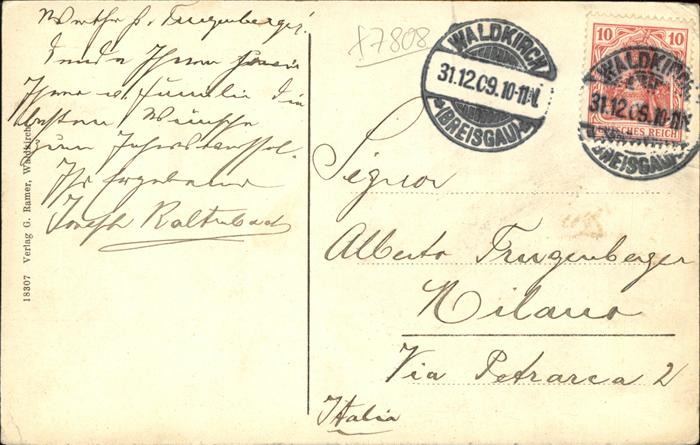 Werther H. Trugenberger!
sende Ihnen sowie
Ihrer w. Familie die
besten Wünsche
zum Jahreswechsel.
Ihr ergebener
Joseph Kaltenbach
18307 Verlag G. Ramer, Waldkirch
X7808
WALDKIRCH
31.12.09.10-11V.
(BREISGAU)
10 10
DEUTSCHES REICH
WALDKIRCH
31.12.09.10-11V.
(BREISGAU)
Signor
Alberto Trugenberger
Milano
Via Petrarca 2
Italia